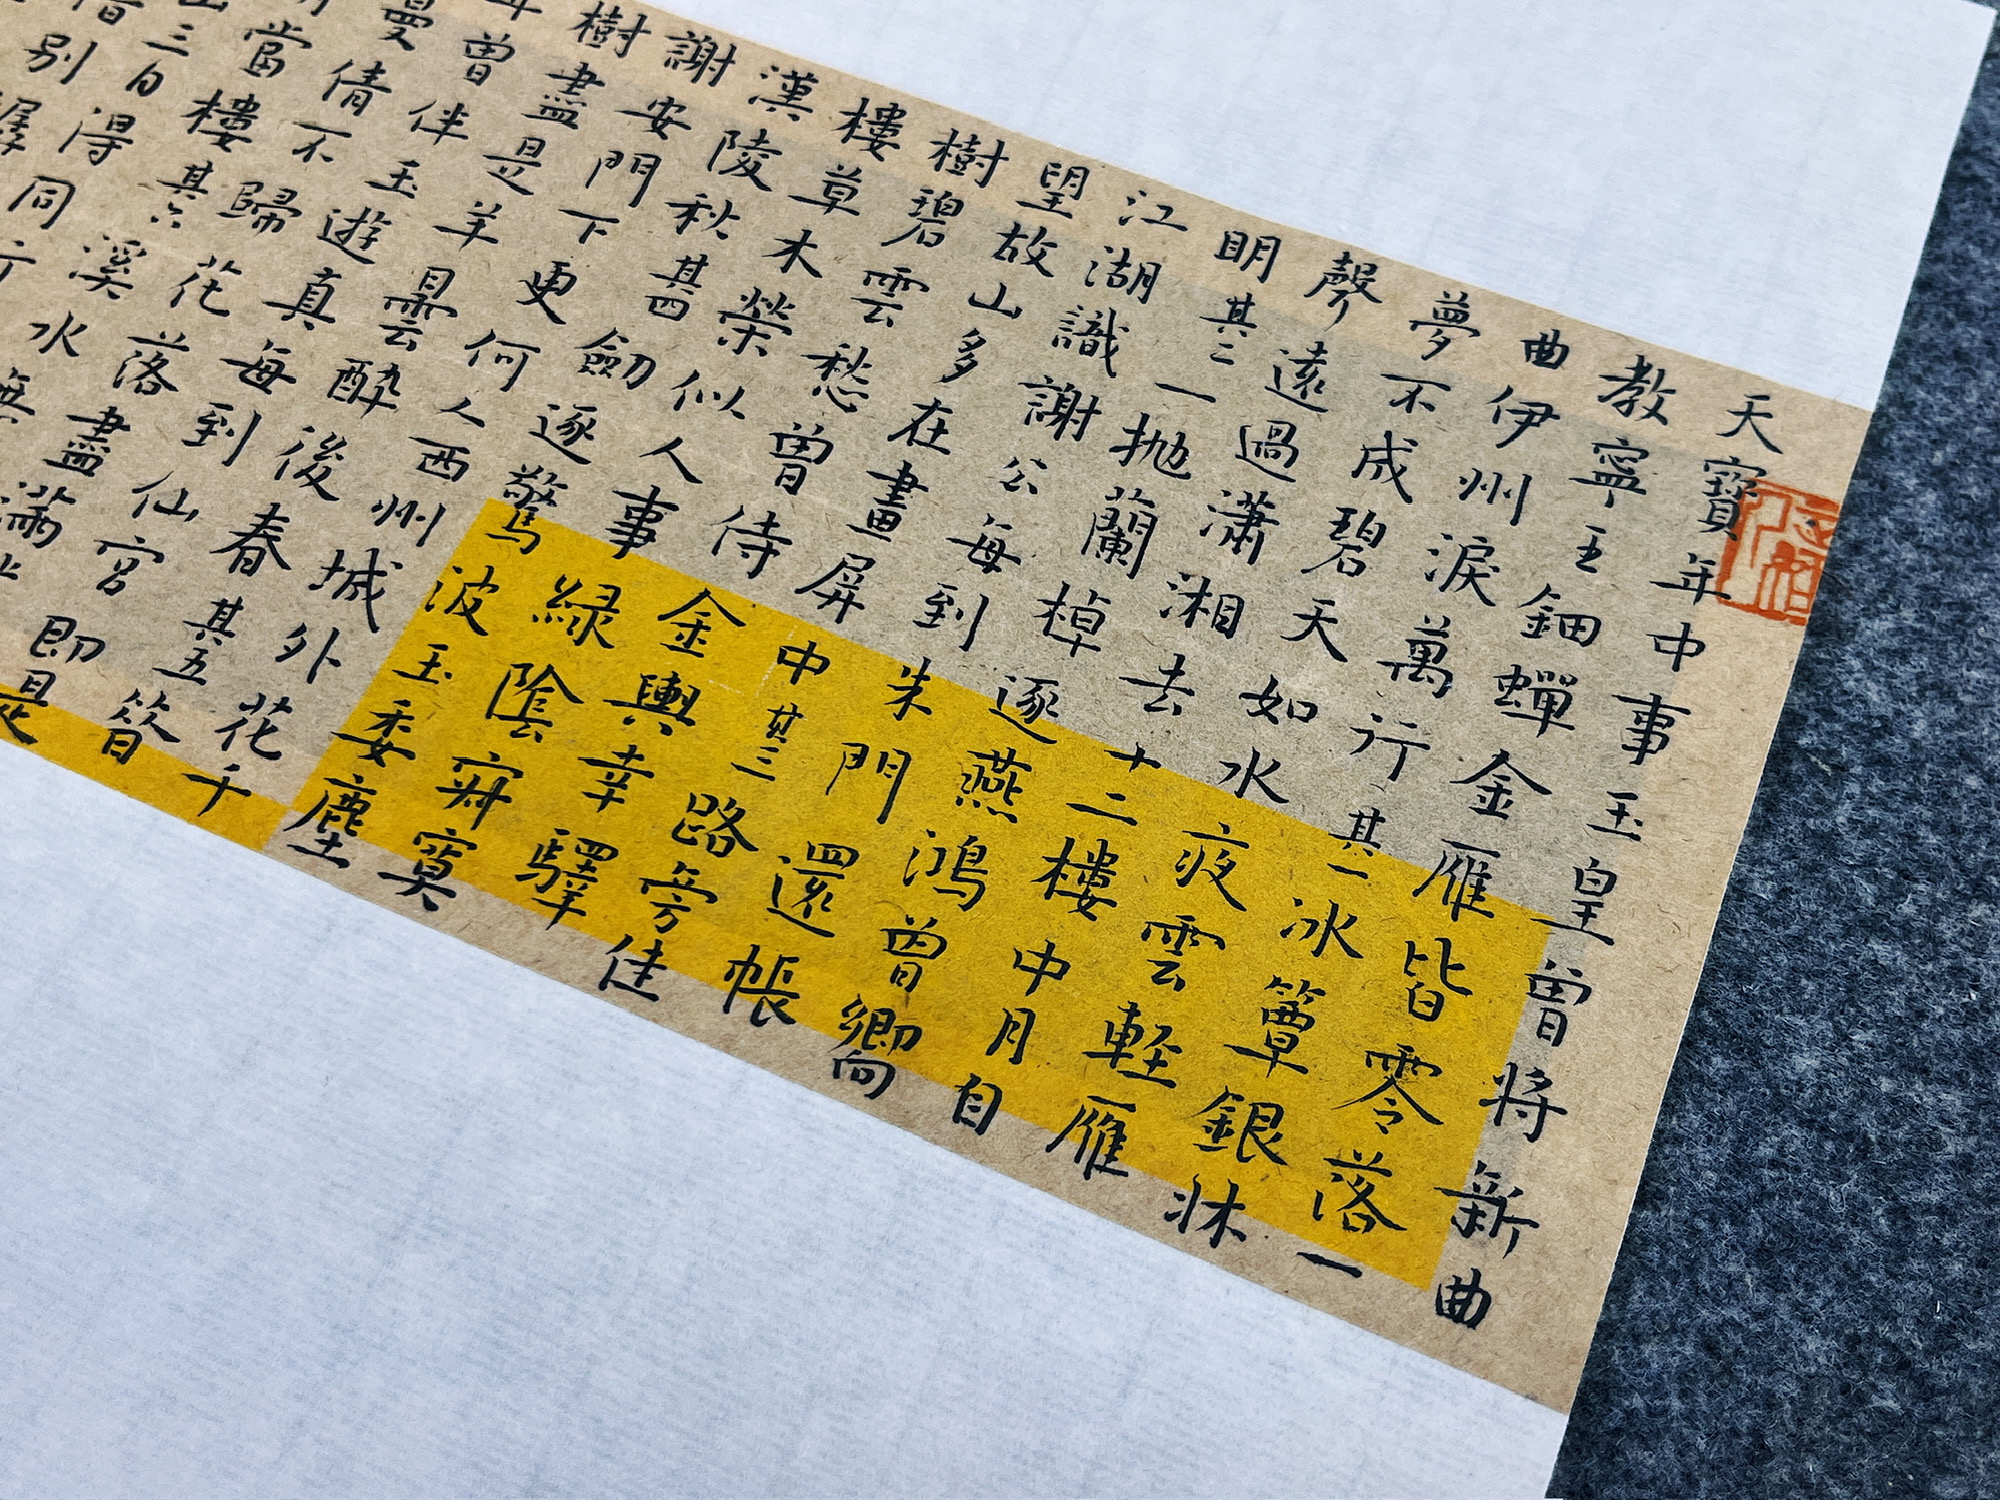 天寶年中事玉皇曾將新曲
教寧王鈿蟬金雁皆零落一
曲伊州淚萬行其一冰簟銀牀
夢不成碧天如水夜雲輕雁
聲遠過瀟湘去十二樓中月自
明其二一拋蘭棹逐燕鴻曾嚮
江湖識謝公每到朱門還悵
望故山多在畫屏中其三路旁佳
樹碧雲愁曾侍金輿幸驛
樓草木榮似人事綠陰寂寞
漢陵秋其四劒逐驚波玉委塵
謝安門下更何人西州城外花千
樹盡是羊曇醉後春其五昔
年曾伴玉真遊每到仙宮即是
曼倩不歸花落盡滿
當樓其六溪水無
山三日得同行
惜別